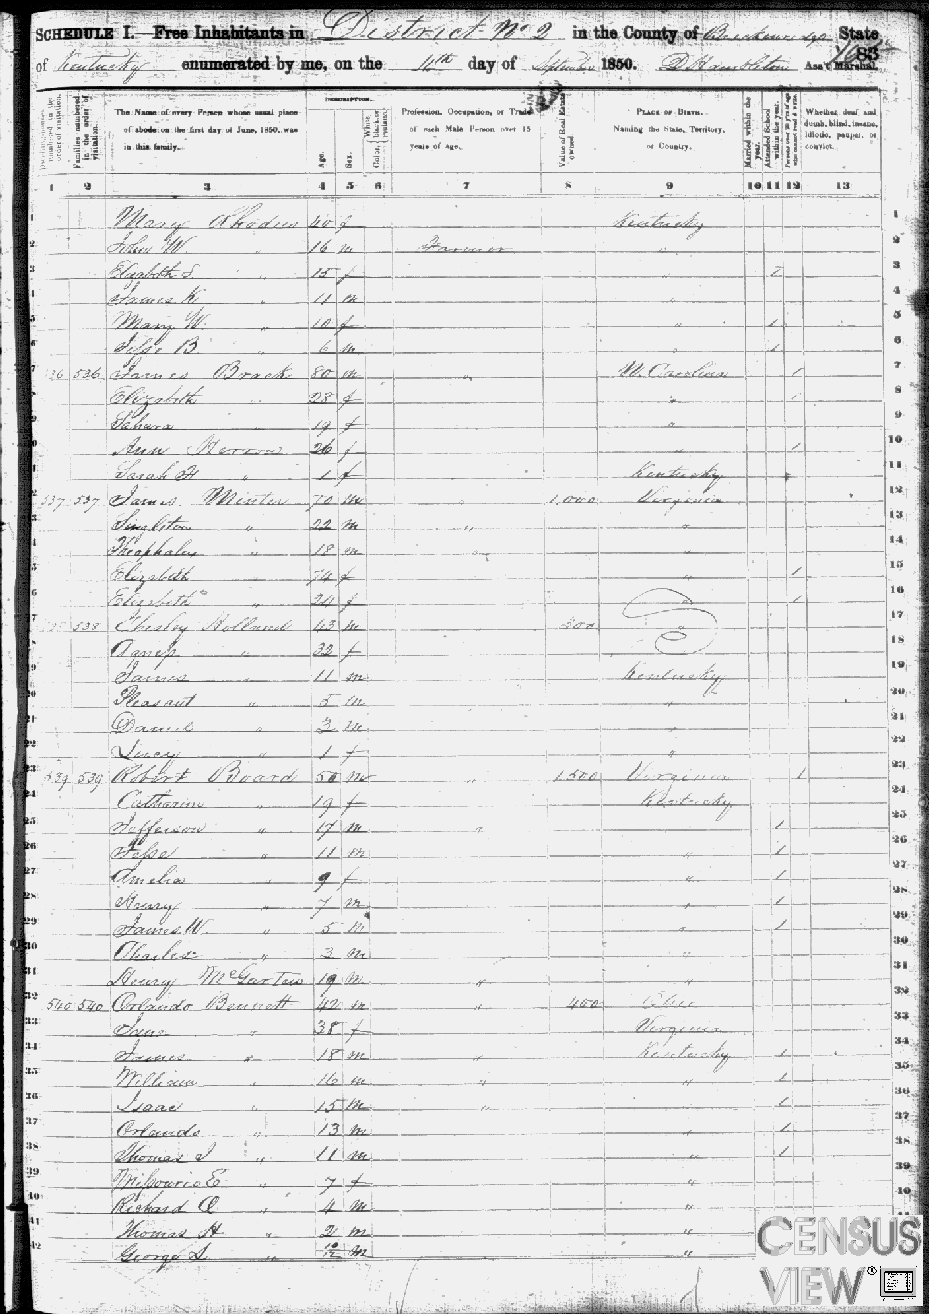 SCHEDULE I.—Free Inhabitants in District No 2 in the County of Breckenridge State
of Kentucky enumerated by me, on the 11th day of September 1850. D. Hambleton Ass't Marshal.
83
Families numbered in the order of visitation.
The Name of every Person whose usual place of abode on the first day of June, 1850, was in this family.
Description.
Age.
Sex.
White, black or mulatto. Color,
Profession, Occupation, or Trade of each Male Person over 15 years of age.
Value of Real Estate owned.
PLACE OF BIRTH. Naming the State, Territory, or Country.
Married within the year.
Attended School within the year.
Whether deaf and dumb, blind, insane, idiotic, pauper, or convict.
1 2 3 4 5 6 7 8 9 10 11 12 13
1 Mary Rhodes 40 f Kentucky 1
2 John W. " 16 m Farmer " 2
3 Elizabeth S. " 15 f " 1 3
4 James K. 11 m " 4
5 Mary W. " 10 f " 1 5
6 Jesse B. " 6 m " 1 6
536 536 James Brack 80 m " N. Carolina 1 7
Elizabeth " 28 f " 1 8
19 f " 9
Ann 26 f " 1 10
Sarah H " 1 f Kentucky 11
537 537 James Minter 70 m " 1,000 Virginia 12
Singleton " 22 m " " 13
Theophalus " 18 m " " 14
Elizabeth " 74 f " 1 15
Elizabeth " 24 f " 1 16
538 Chesley Holland 43 m 300 " 17
" 32 f 18
James " 11 m Kentucky 19
Pleasant " 5 m " 20
Daniel " 3 m " 21
Lucy " 1 f " 22
539 539 Robert Board 50 m " 1,500 Virginia 1 23
Catharine " 19 f Kentucky 24
Jefferson " 17 m " " 1 25
Jesse " 11 m " 1 26
Amelia " 9 f " 1 27
Henry " 7 m " 1 28
James W. " 5 m " 1 29
Charles " 3 m " 30
Henry 19 m " " 31
540 540 Orlando Bennett 42 m " 400 Ohio 32
Irene " 38 f Virginia 33
James " 18 m " Kentucky 1 34
William " 16 m " " 1 35
Isaac " 15 m " " 1 36
Orlando " 13 m " 1 37
Thomas J " 11 m " 1 38
Missouri E " 7 f " 39
Richard O " 4 m " 40
Thomas H " 2 m " 41
George L. " 10/12 m " 42
CENSUS
VIEW®